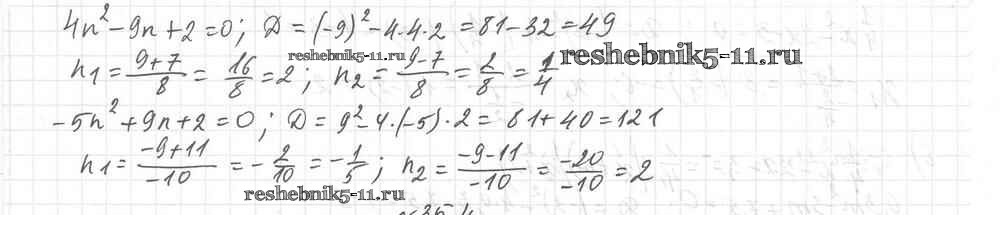 4n² - 9n + 2 = 0; D = (-9)² - 4·4·2 = 81 - 32 = 49
reshebnik5-11.ru
n₁ = (9+7)/8 = 16/8 = 2; n₂ = (9-7)/8 = 2/8 = 1/4
reshebnik5-11.ru
-5n² + 9n + 2 = 0; D = 9² - 4·(-5)·2 = 81 + 40 = 121
n₁ = (-9+11)/(-10) = -2/10 = -1/5; n₂ = (-9-11)/(-10) = (-20)/(-10) = 2
reshebnik5-11.ru